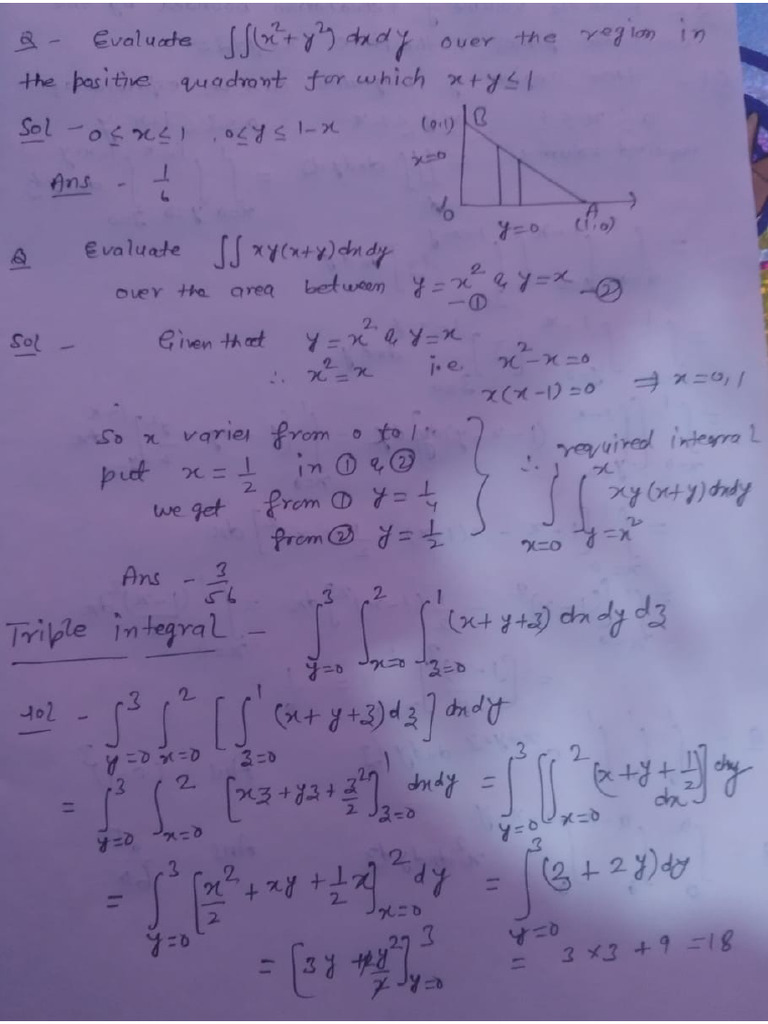 Q - Evaluate ∬(x²+y²) dxdy over the region in
the positive quadrant for which x+y≤1
Sol - 0≤x≤1, 0≤y≤1-x
(0,1) B
x=0
Ans - 1/6
O A
y=0 (1,0)
Q Evaluate ∬ xy(x+y) dxdy
over the area between y=x² -① & y=x -②
Sol - Given that y=x² & y=x
∴ x²=x i.e. x²-x=0
x(x-1)=0 ⇒ x=0,1
So x varies from 0 to 1.
put x=1/2 in ① & ②
we get from ① y=1/4
from ② y=1/2
∴ required integral
∫_{x=0}^{1} ∫_{y=x²}^{x} xy(x+y) dxdy
Ans - 3/56
Triple integral - ∫_{y=0}^{3} ∫_{x=0}^{2} ∫_{z=0}^{1} (x+y+z) dx dy dz
sol - ∫_{y=0}^{3} ∫_{x=0}^{2} [∫_{z=0}^{1} (x+y+z) dz] dxdy
= ∫_{y=0}^{3} ∫_{x=0}^{2} [xz+yz+z²/2]_{z=0}^{1} dxdy = ∫_{y=0}^{3} [∫_{x=0}^{2} (x+y+1/2) dx] dy
= ∫_{y=0}^{3} [x²/2+xy+1/2x]_{x=0}^{2} dy = ∫_{y=0}^{3} (3+2y) dy
= [3y+2y²/2]_{y=0}^{3} = 3×3+9=18